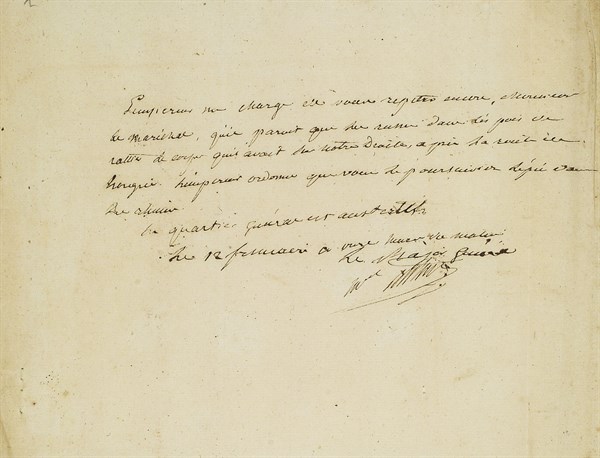 L'empereur me charge de vous repeter encore, Monsieur
le maréchal, qu'il parait que les russes dans les
de corps qu'ils avait sur notre Droite, a pris la route de
hongrie. L'empereur ordonne que vous le poursuiviez l'épée dans
les reins.
Le quartier général est austerlitz
Le 12 frimaire a onze heures du matin
Le Major Général
Mal